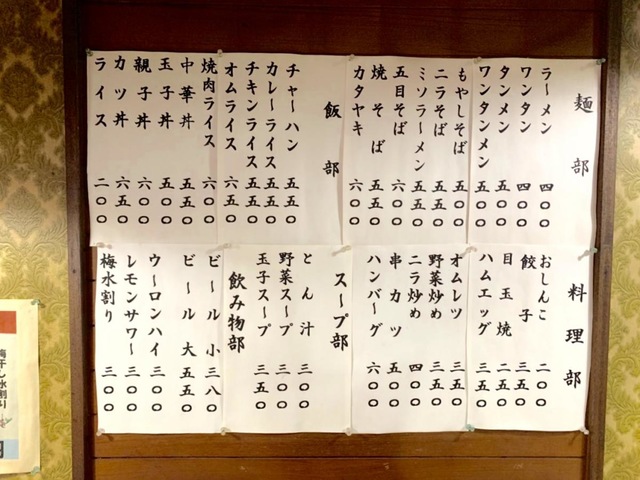 麺部
ラーメン 四〇〇
ワンタン 四〇〇
タンメン 五〇〇
ワンタンメン 五五〇
もやしそば 五〇〇
ニラそば 五五〇
ミソラーメン 五五〇
五目そば 六〇〇
焼そば 五五〇
カタヤキ 六〇〇
飯部
チャーハン 五五〇
カレーライス 五五〇
チキンライス 五五〇
オムライス 六五〇
焼肉ライス 六〇〇
中華丼 五五〇
玉子丼 五〇〇
親子丼 六〇〇
カツ丼 六五〇
ライス 二〇〇
料理部
おしんこ 二〇〇
餃子 三五〇
目玉焼 二五〇
ハムエッグ 三五〇
オムレツ 三五〇
野菜炒め 三五〇
ニラ炒め 四〇〇
串カツ 五〇〇
ハンバーグ 六〇〇
スープ部
とん汁 三〇〇
野菜スープ 三〇〇
玉子スープ 三五〇
飲み物部
ビール小 三八〇
ビール大 五五〇
ウーロンハイ 三〇〇
レモンサワー 三〇〇
梅水割り 三〇〇
梅干し水割り